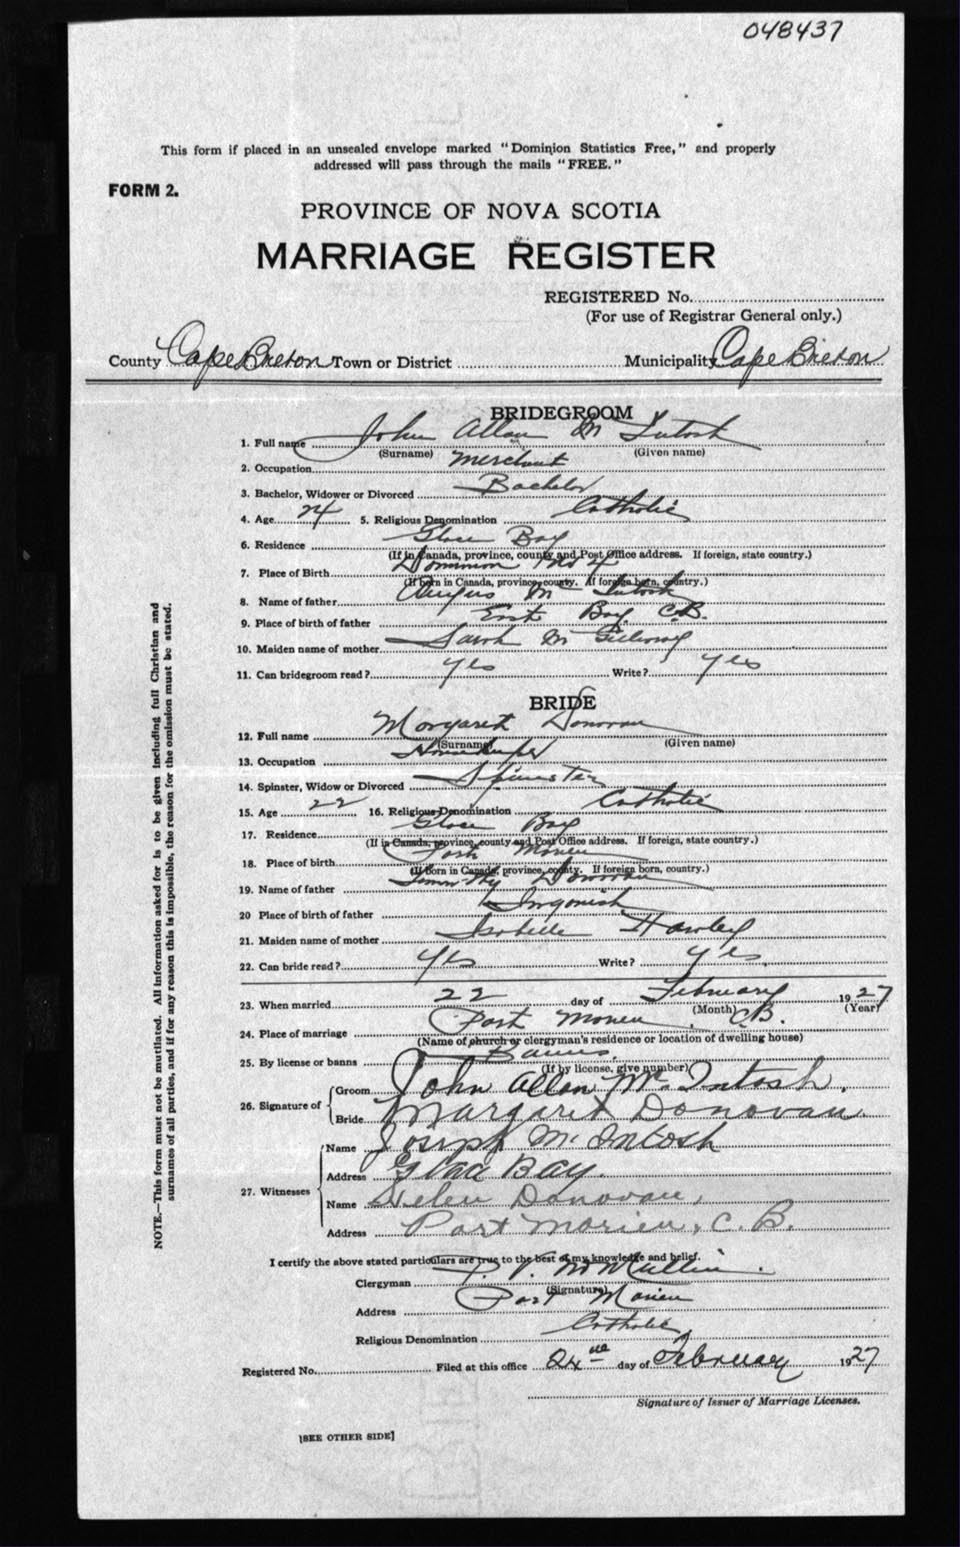 048437
This form if placed in an unsealed envelope marked "Dominion Statistics Free," and properly
addressed will pass through the mails "FREE."
FORM 2.
PROVINCE OF NOVA SCOTIA
MARRIAGE REGISTER
REGISTERED No.
(For use of Registrar General only.)
County Cape Breton Town or District Municipality Cape Breton
BRIDEGROOM
1. Full name John Allan McIntosh
(Surname) (Given name)
2. Occupation Merchant
3. Bachelor, Widower or Divorced Bachelor
4. Age 24 5. Religious Denomination Catholic
6. Residence Glace Bay
(If in Canada, province, county and Post Office address. If foreign, state country.)
7. Place of Birth Dominion No 4
(If born in Canada, province, county. If foreign born, country.)
8. Name of father Angus McIntosh
9. Place of birth of father East Bay C.B.
10. Maiden name of mother Sarah
11. Can bridegroom read? yes Write? yes
BRIDE
12. Full name Margaret Donovan
(Surname) (Given name)
13. Occupation Housekeeper
14. Spinster, Widow or Divorced Spinster
15. Age 22 16. Religious Denomination Catholic
17. Residence Glace Bay
(If in Canada, province, county and Post Office address. If foreign, state country.)
18. Place of birth Port Morien
(If born in Canada, province, county. If foreign born, country.)
19. Name of father Timothy Donovan
20 Place of birth of father Ingonish
21. Maiden name of mother Isabelle Hawley
22. Can bride read? yes Write? yes
23. When married 22 day of February 1927
(Month) (Year)
24. Place of marriage Port Morien C.B.
(Name of church or clergyman's residence or location of dwelling house)
25. By license or banns Banns.
(If by license, give number)
26. Signature of Groom John Allan McIntosh.
Bride Margaret Donovan
27. Witnesses Name Joseph McIntosh
Address Glace Bay.
Name Helen Donovan,
Address Port Morien, C.B.
I certify the above stated particulars are true to the best of my knowledge and belief.
Clergyman McMullin.
(Signature)
Address Port Morien
Religious Denomination Catholic
Registered No. Filed at this office 24th day of February 1927
Signature of Issuer of Marriage Licenses.
[SEE OTHER SIDE]
NOTE.—This form must not be mutilated. All information asked for is to be given including full Christian and
surnames of all parties, and if for any reason this is impossible, the reason for the omission must be stated.